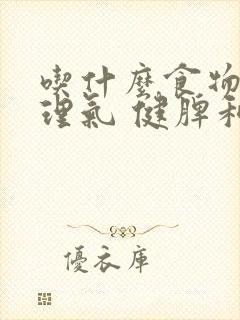 喫什麼食物
理氣 健脾和
優衣庫